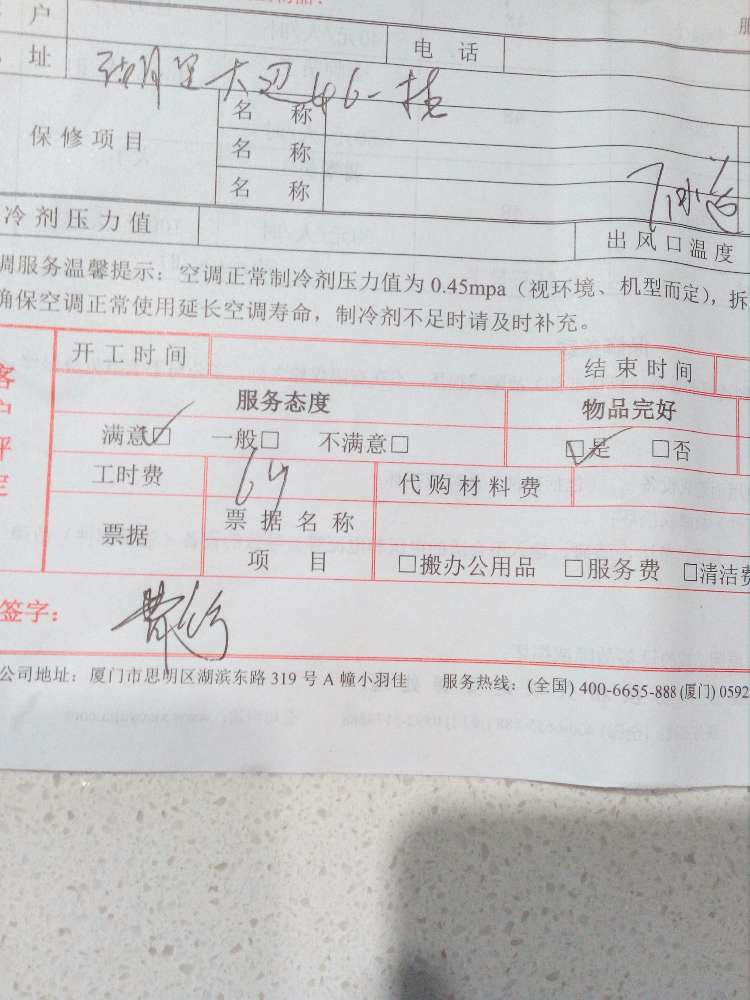 户 电 话
址 大 46
保修项目 名 称
名 称
名 称
冷剂压力值 出风口温度
调服务温馨提示：空调正常制冷剂压力值为 0.45mpa（视环境、机型而定），拆
确保空调正常使用延长空调寿命，制冷剂不足时请及时补充。
开工时间 结束时间
服务态度 物品完好
满意☑ 一般□ 不满意□ ☑是 □否
工时费 64 代购材料费
票据 票据名称
项 目 □搬办公用品 □服务费 □清洁费
签字：
公司地址：厦门市思明区湖滨东路 319 号 A 幢小羽佳 服务热线：(全国) 400-6655-888 (厦门) 0592